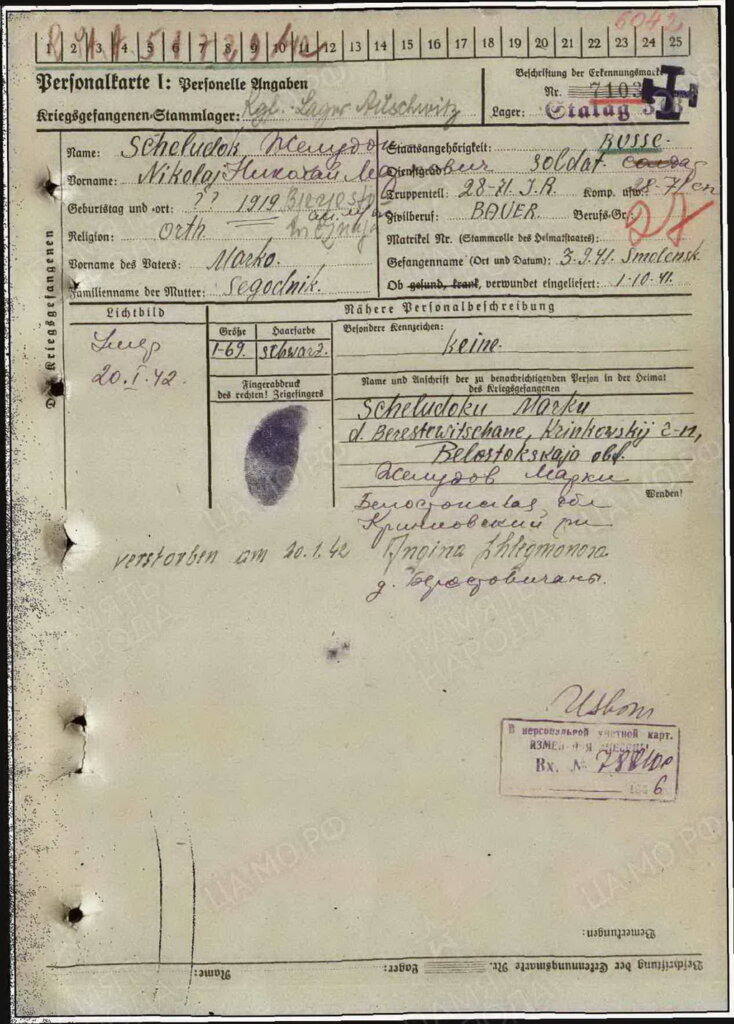 1 2 3 4 5 6 7 8 9 10 11 12 13 14 15 16 17 18 19 20 21 22 23 24 25
Personalkarte I: Personelle Angaben
Beschriftung der Erkennungsmarke
Nr. 7103
Kriegsgefangenen-Stammlager: Kgf.-Lager Auschwitz
Lager: Stalag
Des Kriegsgefangenen
Name: Scheludok Желудок
Staatsangehörigkeit: RUSSE
Vorname: Nikolaj Николай
Dienstgrad: Soldat
Geburtstag und -ort: ?? 1919
Truppenteil: 28-71. I.R. Komp. usw.: 28-71
Zivilberuf: BAUER. Berufs-Gr.: 27
Religion: Orth
Matrikel Nr. (Stammrolle des Heimatstaates):
Vorname des Vaters: Marko.
Gefangenname (Ort und Datum): 3.9.41. Smolensk
Familienname der Mutter: Segodnik.
Ob gesund, krank, verwundet eingeliefert: 1-10-41.
Lichtbild
Nähere Personalbeschreibung
Größe
Haarfarbe
Besondere Kennzeichen:
1-69. schwarz.
keine.
Умер
20.I.42.
Fingerabdruck
des rechten! Zeigefingers
Name und Anschrift der zu benachrichtigenden Person in der Heimat
des Kriegsgefangenen
Scheludoku Marku
d. Berestowitschane, Krinkowskij r-n,
Belostokskaja obl.
Wenden!
Белостокская обл
Кринковский
verstorben am 20.1.42 Angina Phlegmonosa
д. Берестовичаны.
В персональной учетной карт.
Вх. №
Bemerkungen:
Name: Lager: Beschriftung der Erkennungsmarke Nr.
ЦАМО.РФ
ПАМЯТЬ
НАРОДА